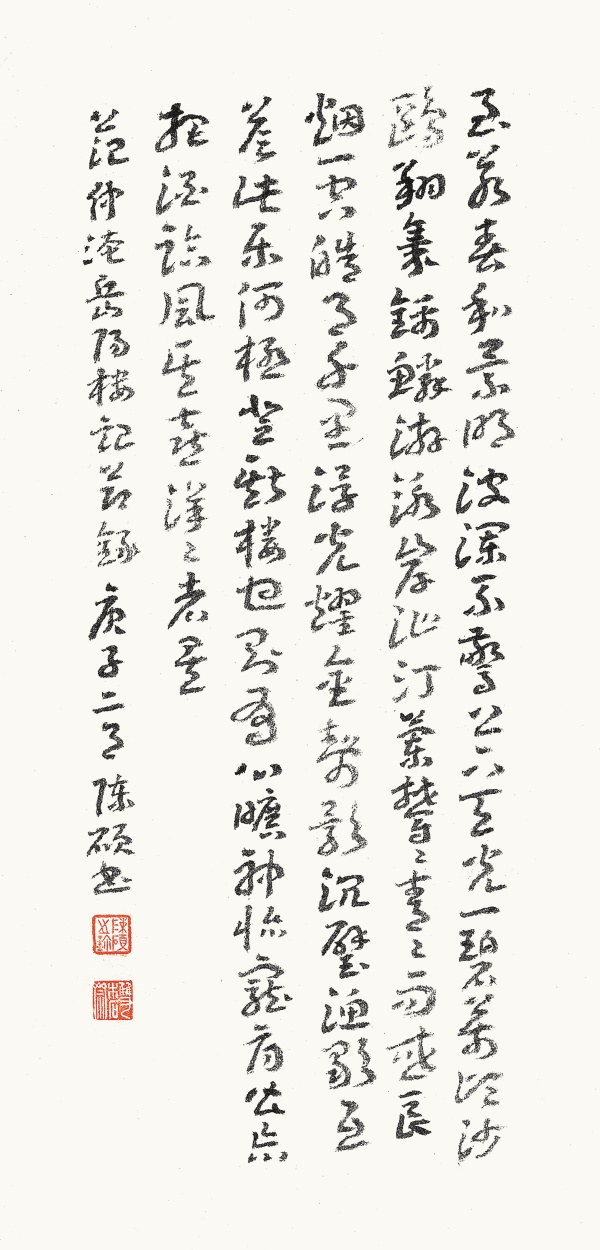 至若春和景明波瀾不驚上下天光一碧萬頃沙
鷗翔集錦鱗游泳岸芷汀蘭鬱〻青〻而或長
烟一空皓月千里浮光耀金静影沉璧漁歌互
答此樂何極登斯樓也則有心曠神怡寵辱偕忘
把酒臨風其喜洋〻者矣
范仲淹岳陽樓記節錄 庚子二月 陳碩書